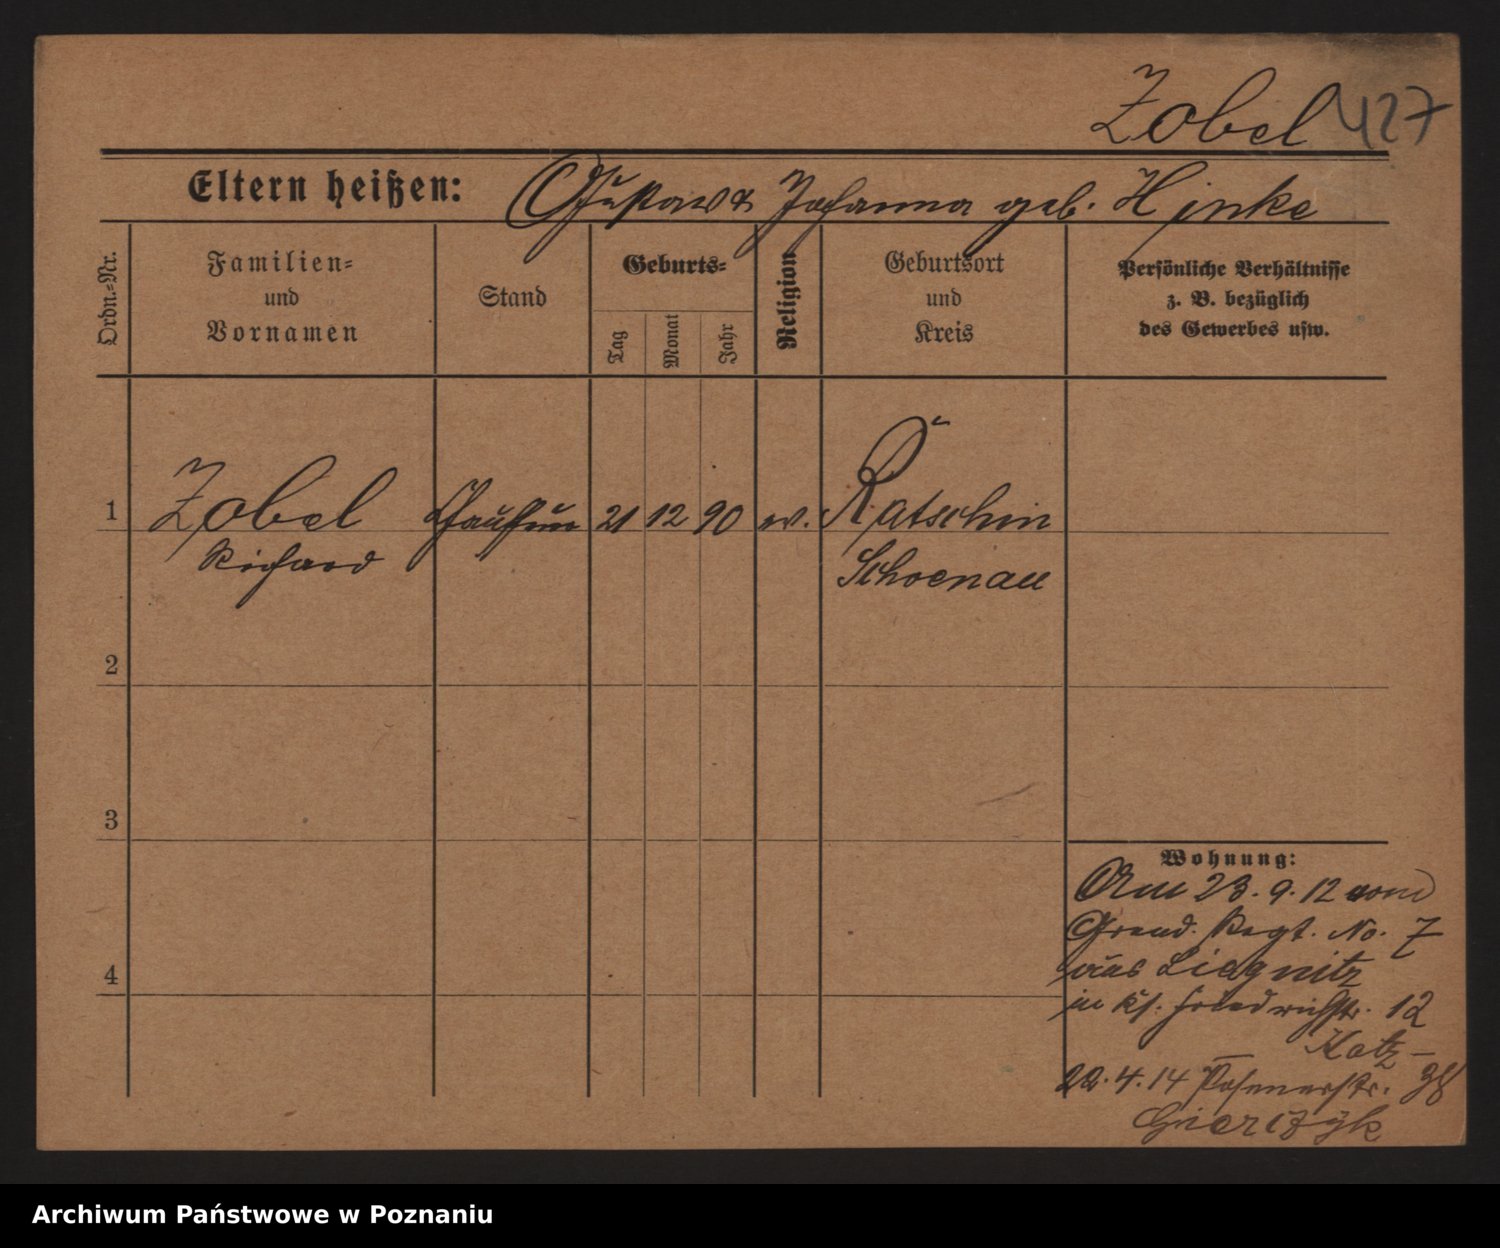 Zobel 427
Eltern heißen: Gustaw & Johanna geb. Hinke
Ordn.=Nr.
Familien=
und
Vornamen
Stand
Geburts=
Tag
Monat
Jahr
Religion
Geburtsort
und
Kreis
Persönliche Verhältnisse
z. B. bezüglich
des Gewerbes usw.
1 Zobel 21 12 90 ev. Ratschin
Richard Schoenau
2
3
4
Wohnung:
Am 23. 9. 12 vom
Grend. Regt. No. 7
aus Liegnitz
in Friedrichstr. 12
Katz –
22. 4. 14 Posenerstr. 38
Archiwum Państwowe w Poznaniu